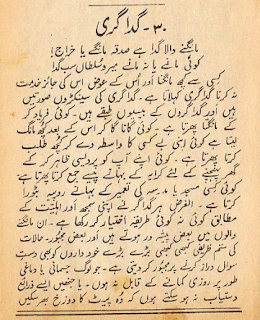 ۳۰۔ گداگری
مانگنے والا گدا ہے صدقہ مانگے یا خراج!
کوئی مانے یا نہ مانے میرو سلطاں سب گدا
کسی سے کچھ مانگنا اور اُس کے عوض اس کی جائز خدمت
نہ کرنا گداگری کہلاتا ہے۔ گداگری کی سینکڑوں صورتیں
ہیں اور گداگروں کے بیسیوں طبقے ہیں۔ کوئی فریاد کر
کے مانگتا پھرتا ہے۔ کوئی گانا گا کر اس کے بعد کچھ مانگ
لیتا ہے کوئی اپنی بے کسی کا واسطہ دے کر کچھ طلب
کرتا پھرتا ہے۔ کوئی اپنے آپ کو پردیسی ظاہر کر کے
گھر پہنچنے کے لئے کرایہ کے بہانے پیسے جمع کرتا پھرتا ہے
کوئی کسی مسجد یا مدرسہ کی تعمیر کے بہانے روپیہ بٹورا
کرتا ہے۔ الغرض ہر گداگر نے اپنی سمجھ اور اہلیت کے
مطابق کوئی نہ کوئی طریقہ اختیار کر رکھا ہے۔ ان مانگنے
والوں میں بعض پیشہ ور ہوتے ہیں اور بعض مجبور۔ حالات
کی ستم ظریفی کبھی کبھی بڑے بڑے خود داروں کو بھی دستِ
سوال دراز کرنے پر مجبور کر دیتی ہے۔ جو لوگ جسمانی یا دماغی
طور پر روزی کمانے کے قابل نہ ہوں۔ یا جنھیں ایسے ذرائع
دستیاب نہ ہو سکتے ہوں کہ وُہ پیٹ کا دوزخ بھر سکیں